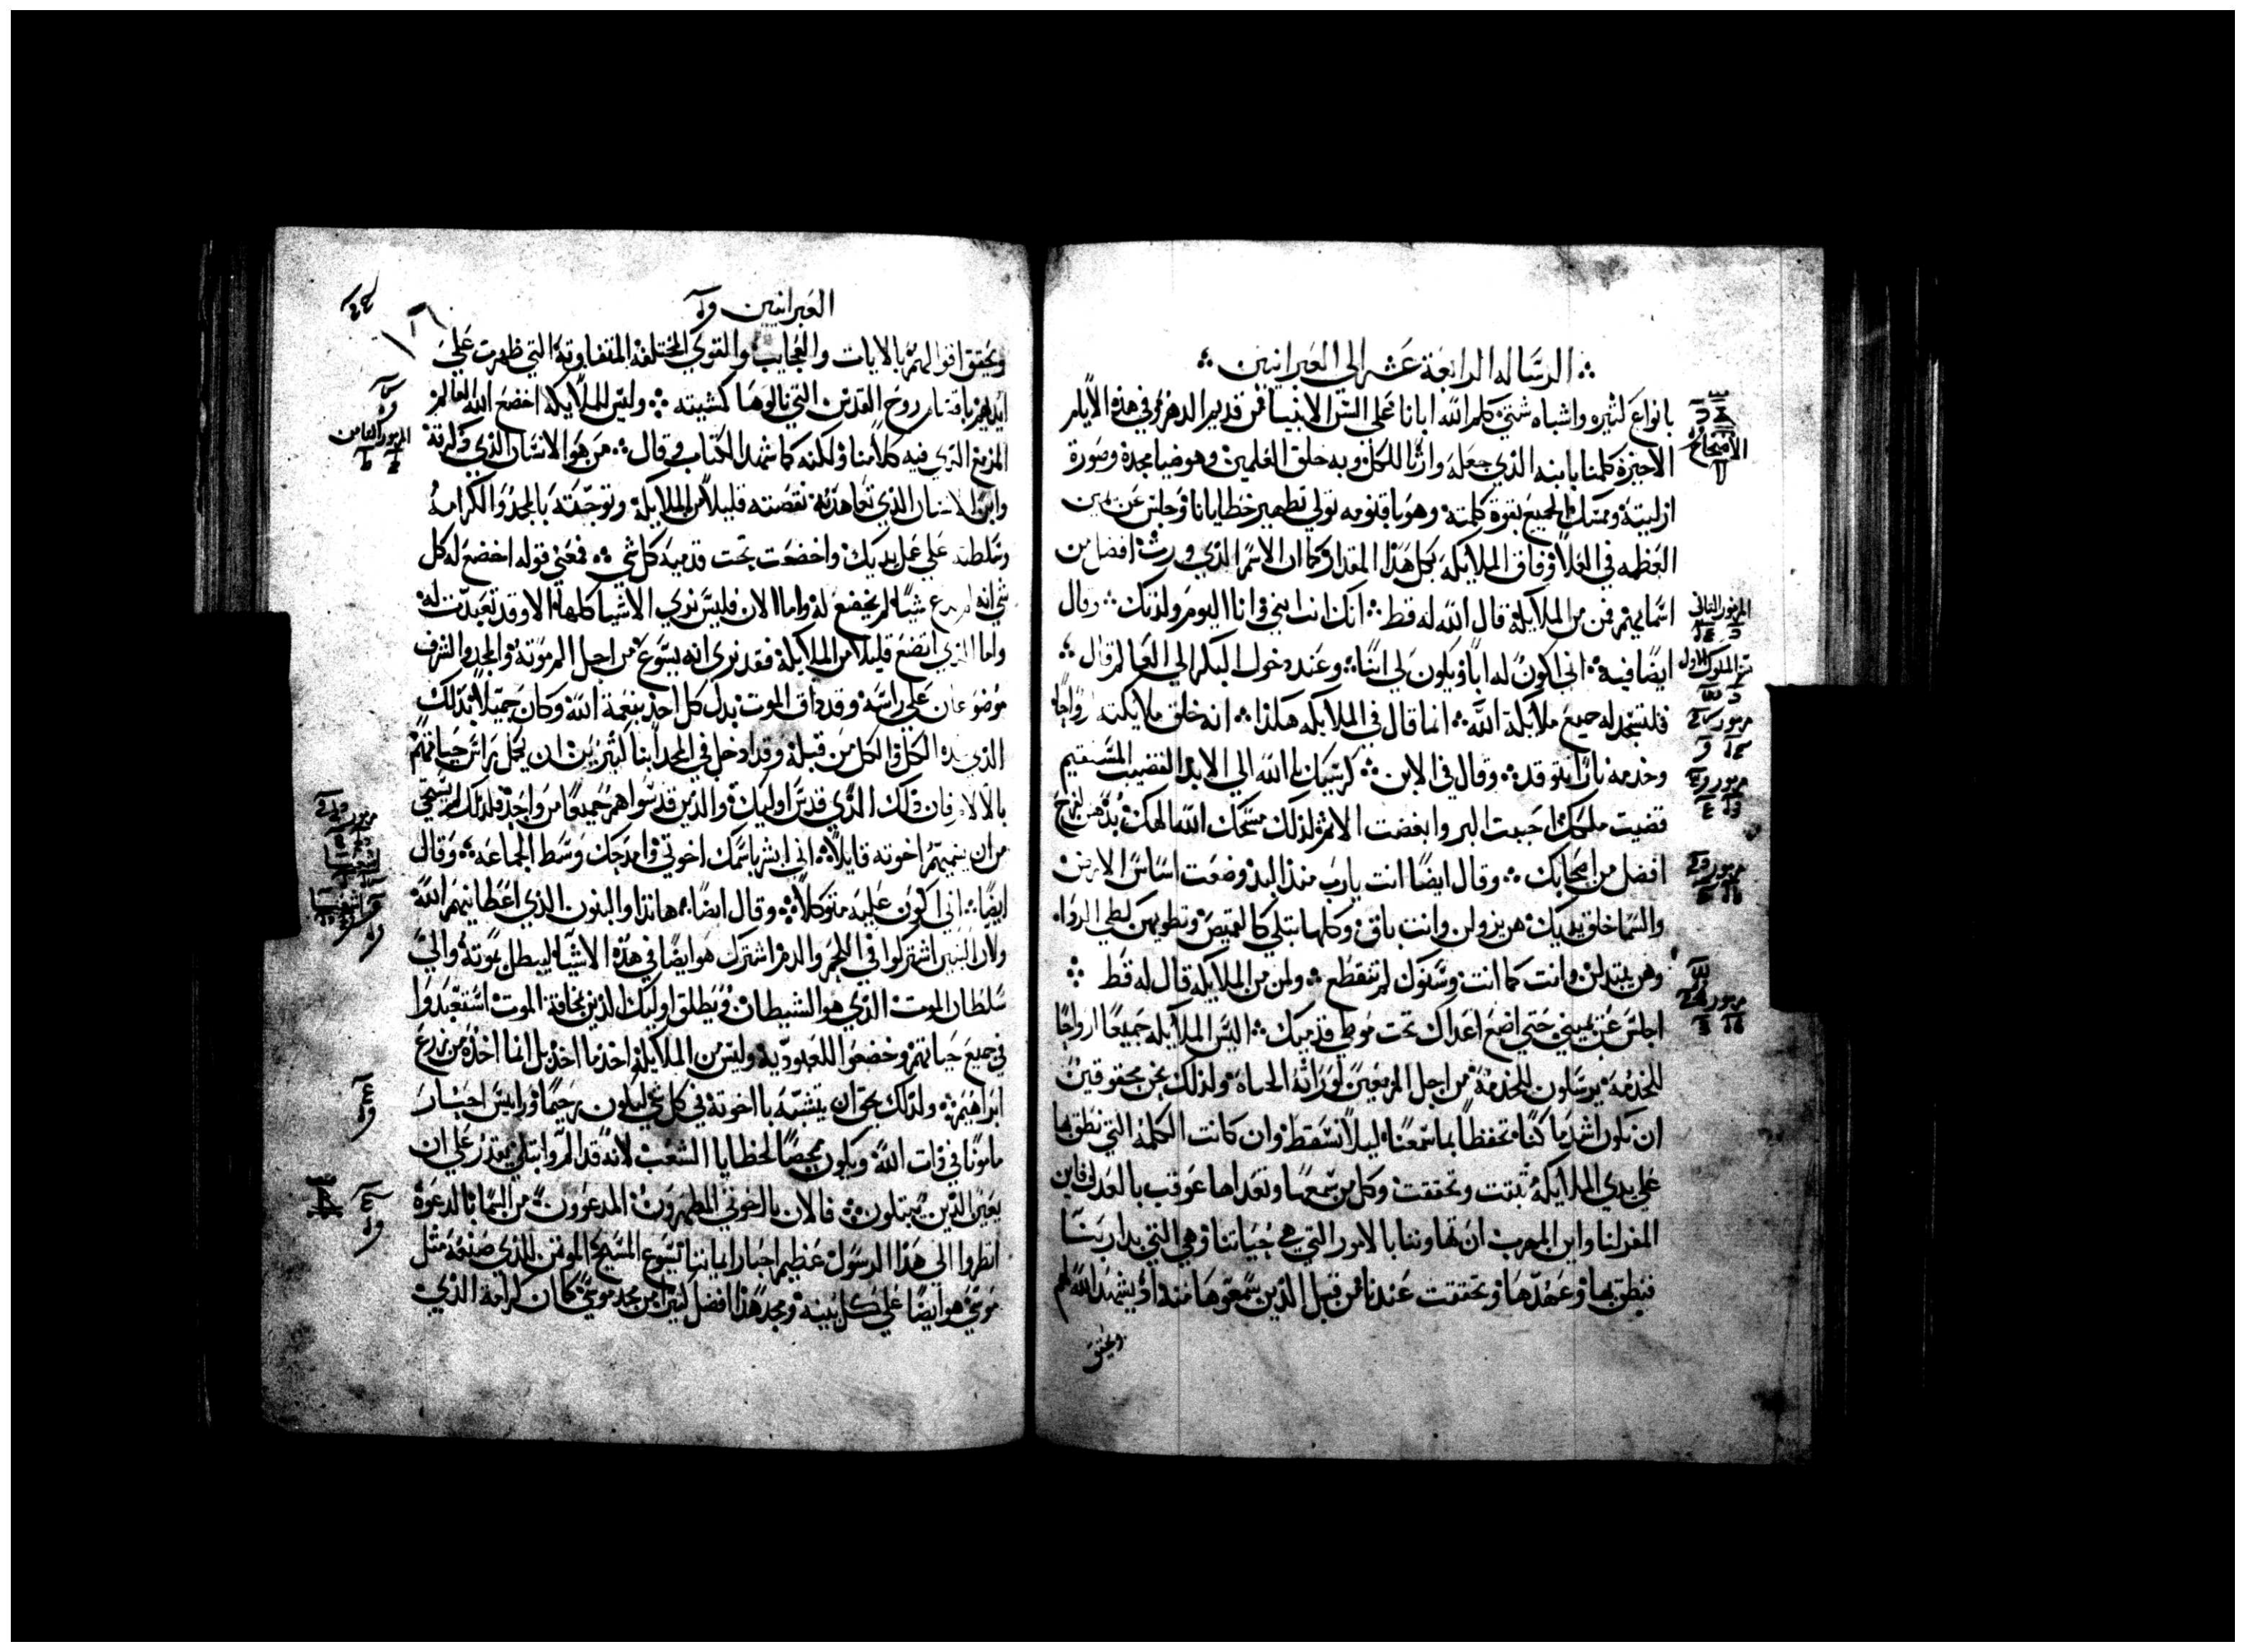 الرساله الرابعة عشر الي العبرانيين
بانواع كثيره واشباه شتي كلم الله ابانا علي السن الانبيا من قديم الدهر وفي هذه الايام
الاخيرة كلمنا بابنه الذي جعله وارثا للكل وبه خلق العلمين وهو ضيا مجده وصورة
ازليته وممسك الجميع بقوة كلمته وهو باقنومه تولي تطهير خطايانا وجلس عن يمين
العظمه في العلا وفاق الملايكه بكل هذا المقدار كما ان الاسم الذي ورث افضل من
اسمايهم فمن من الملايكة قال الله له قط انك انت ابني وانا اليوم ولدتك وقال
ايضا فيه اني اكون له ابا ويكون لي ابنا وعند دخول البكر الي العالم قال
فلتسجد له جميع ملايكة الله انما قال في الملايكه هكذا انه خلق ملايكته ارواحا
وخدمه نارا تتوقد وقال في الابن كرسيك يا الله الي الابد القضيب المستقيم
قضيب ملكك احببت البر وابغضت الاثم لذلك مسحك الله الهك بدهن الفرح
افضل من اصحابك وقال ايضا انت يارب منذ البدو وضعت اساس الارض
والسما خلق يديك هن يزولن وانت باق وكلها تبلي كالقميص وتطويهن كطي الردا
وهن يتبدلن وانت كما انت وسنوك لم تنقطع ولمن من الملايكة قال له قط
اجلس عن يميني حتي اضع اعداك تحت موطي قدميك اليس الملايكة جميعا ارواحا
للخدمة يرسلون للخدمة من اجل المزمعين لوراثة الحياة ولذلك نحن محقوقين
ان نكون اشد ما كنا تحفظا بما سمعنا ليلا نسقط وان كانت الكلمة التي نطق بها
علي يدي الملايكة ثبتت وتحققت وكل من سمعها وتعداها عوقب بالعدل فاين
المفر لنا واين المهرب ان تهاوننا بالامور التي هي حياتنا وهي التي بدا ربنا
فنطق بها وعهدها وتحققت عندنا من قبل الذين سمعوها منه اذ يشهد الله لهم
ويحقق
المزمور الثاني
العبرانيين
ويحقق اقوالهم بالايات والعجايب والقوي المختلفة المتفاوته التي ظهرت علي
ايديهم باقتسام روح القدس التي نالوها كمشيته وليس للملايكه اخضع الله العالم
المزمع الذي فيه كلامنا ولكنه كما شهد الكتاب وقال من هو الانسان الذي ذكرته
وابن الانسان الذي تعاهدته نقصته قليلا من الملايكة وتوجته بالمجد والكرامه
وسلطته علي عمل يديك واخضعت تحت قدميه كل شي فمعني قوله اخضع له كل
شي انه لم يدع شيا لم يخضع له واما الان فليس نري الاشيا كلها الا وقد تعبدت له
واما الذي اتضع قليلا من الملايكة فقد نري انه يسوع من اجل الم موته والمجد والشرف
موضوعان علي راسه وقد ذاق الموت بدل كل احد بنعمة الله وكان جميلا بذلك
الذي بيده الكل والكل من قبله وقد ادخل في المجد ابنا كثيرين ان يكمل راس حياتهم
بالالام فان ذلك الذي قدس اوليك والذين قدسوا هم جميعا من واحد فلذلك لم يستحي
من ان يسميهم اخوته قايلا اني ابشر باسمك اخوتي وامدحك وسط الجماعه وقال
ايضا اني اكون عليه متوكلا وقال ايضا هانذا والبنون الذي اعطانيهم الله
ولان البنين اشتركوا في اللحم والدم اشترك هو ايضا في هذه الاشيا ليبطل بموته والي
سلطان الموت الذي هو الشيطان ويطلق اوليك الذين بمخافة الموت استعبدوا
في جميع حياتهم وخضعوا للعبودية وليس من الملايكة اخذ ما اخذ بل انما اخذه من زرع
ابراهيم ولذلك يحق ان يتشبه باخوته في كل شي ليكون رحيما وراييس احبار
مامونا في ذات الله ويكون ممحصا لخطايا الشعب لانه قد الم وابتلي يقدر علي ان
يعين الذين يبتلون فالان يا اخوتي المطهرون المدعوون من السما بالدعوة
انظروا الي هذا الرسول عظيم احبار ايماننا يسوع المسيح الموتمن للذي صنعه مثل
موسي هو ايضا علي كل بيته ومجد هذا افضل كثيرا من مجد موسي كما ان كرامة الذي
المزمور الثامن